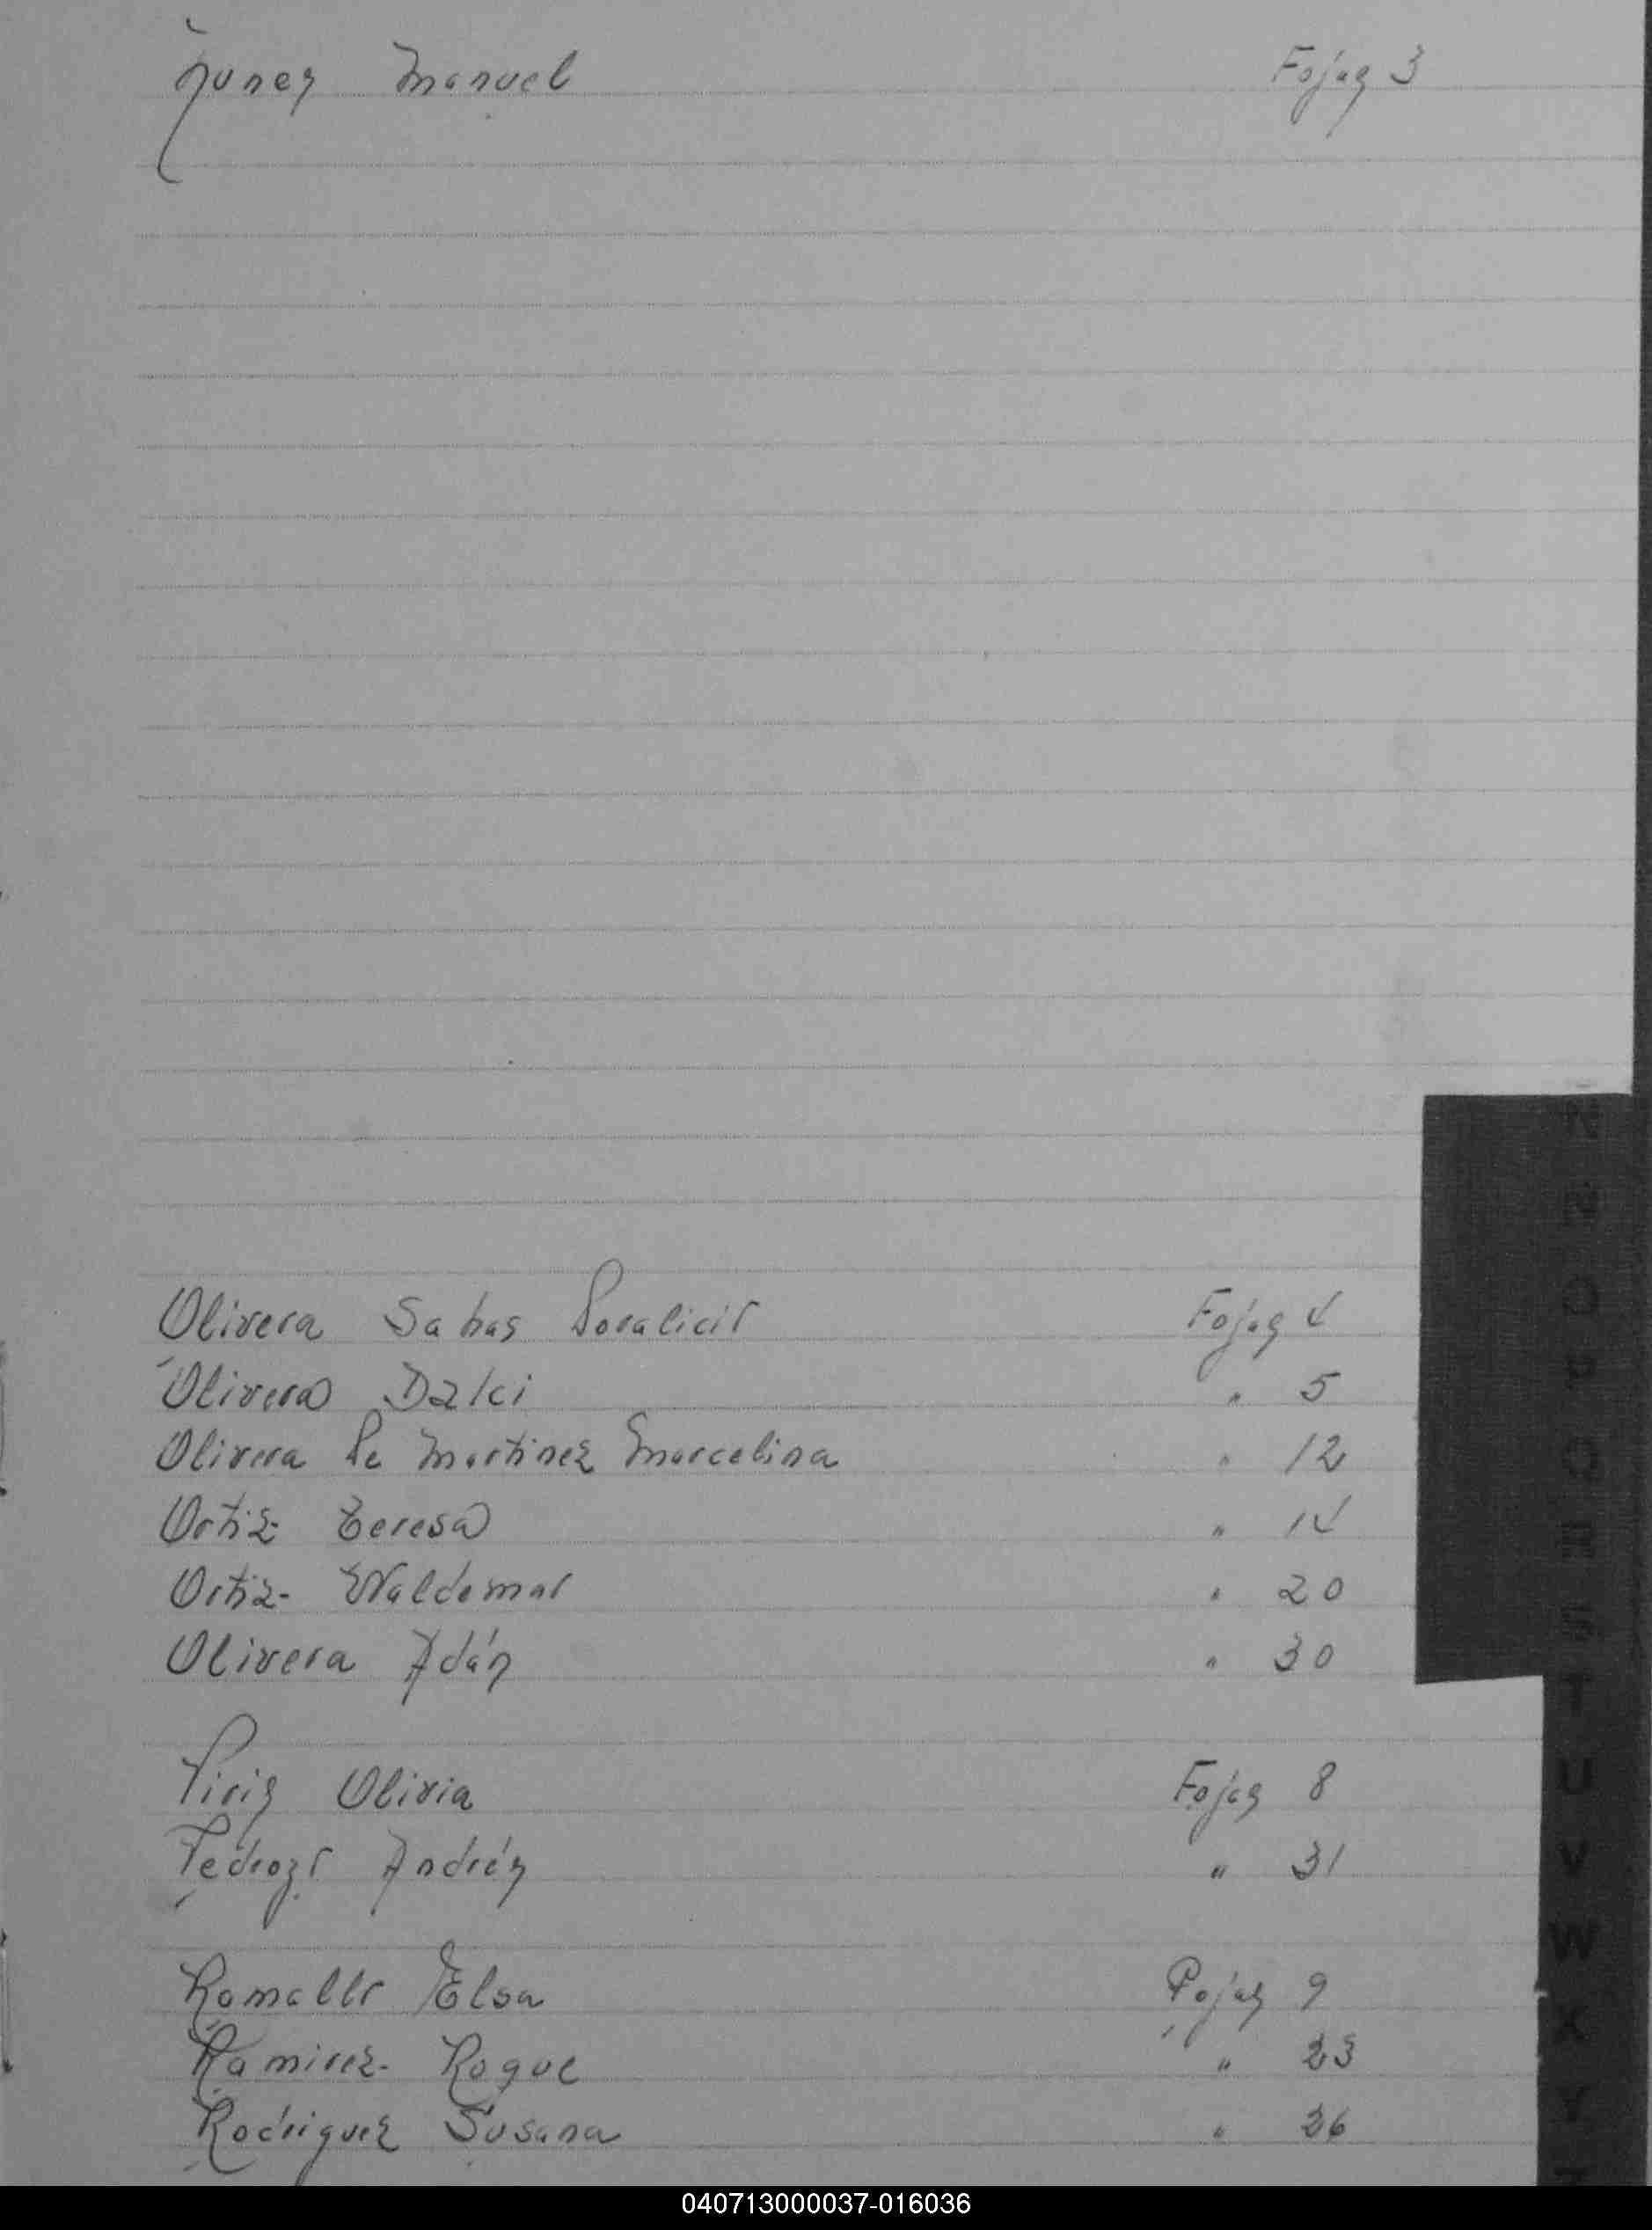 Nunez Manuel Fojas 3
Olivera Sabas Doralicio Fojas 4
Olivera Dalci " 5
Olivera De Martinez Marcelina " 12
Ortiz Teresa " 14
Ortiz- Waldemar " 20
Olivera Adán " 30
Piriz Olivia Fojas 8
Pedrozo Andrés " 31
Ramallo Elsa Fojas 9
Ramirez- Roque " 23
Rodriguez Susana " 26
N
O
P
Q
R
S
T
U
V
W
X
Y
Z
040713000037-016036